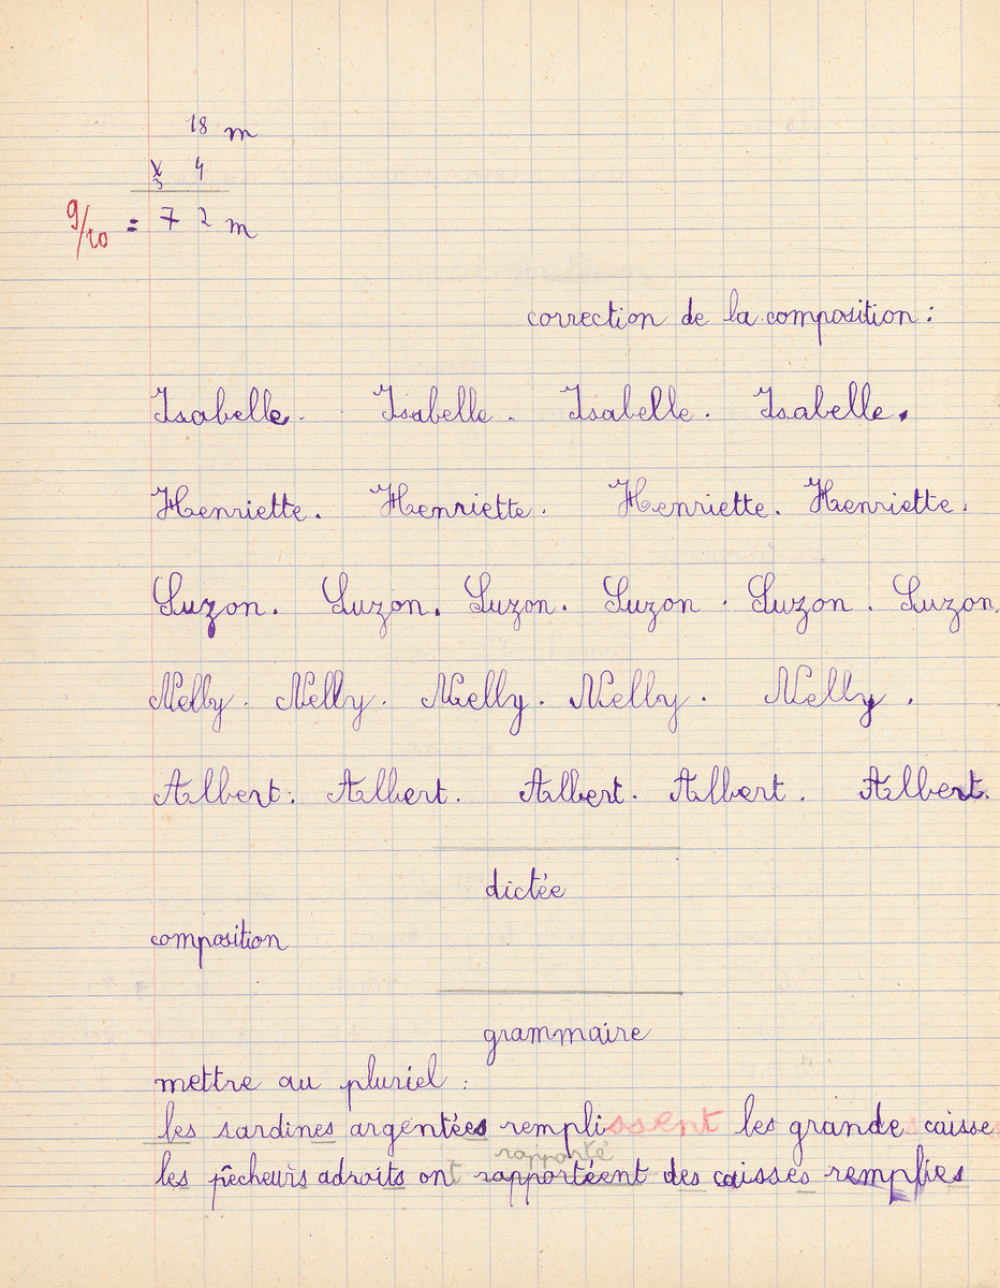 18 m
x 4
3
9/10 = 7 2 m
correction de la composition :
Isabelle. Isabelle. Isabelle. Isabelle.
Henriette. Henriette. Henriette. Henriette.
Suzon. Suzon. Suzon. Suzon. Suzon. Suzon.
Nelly. Nelly. Nelly. Nelly. Nelly.
Albert. Albert. Albert. Albert. Albert.
dictée
composition
grammaire
mettre au pluriel :
les sardines argentées remplissent les grandes caisses
rapporté
les pêcheurs adroits ont rapportéent des caisses remplies